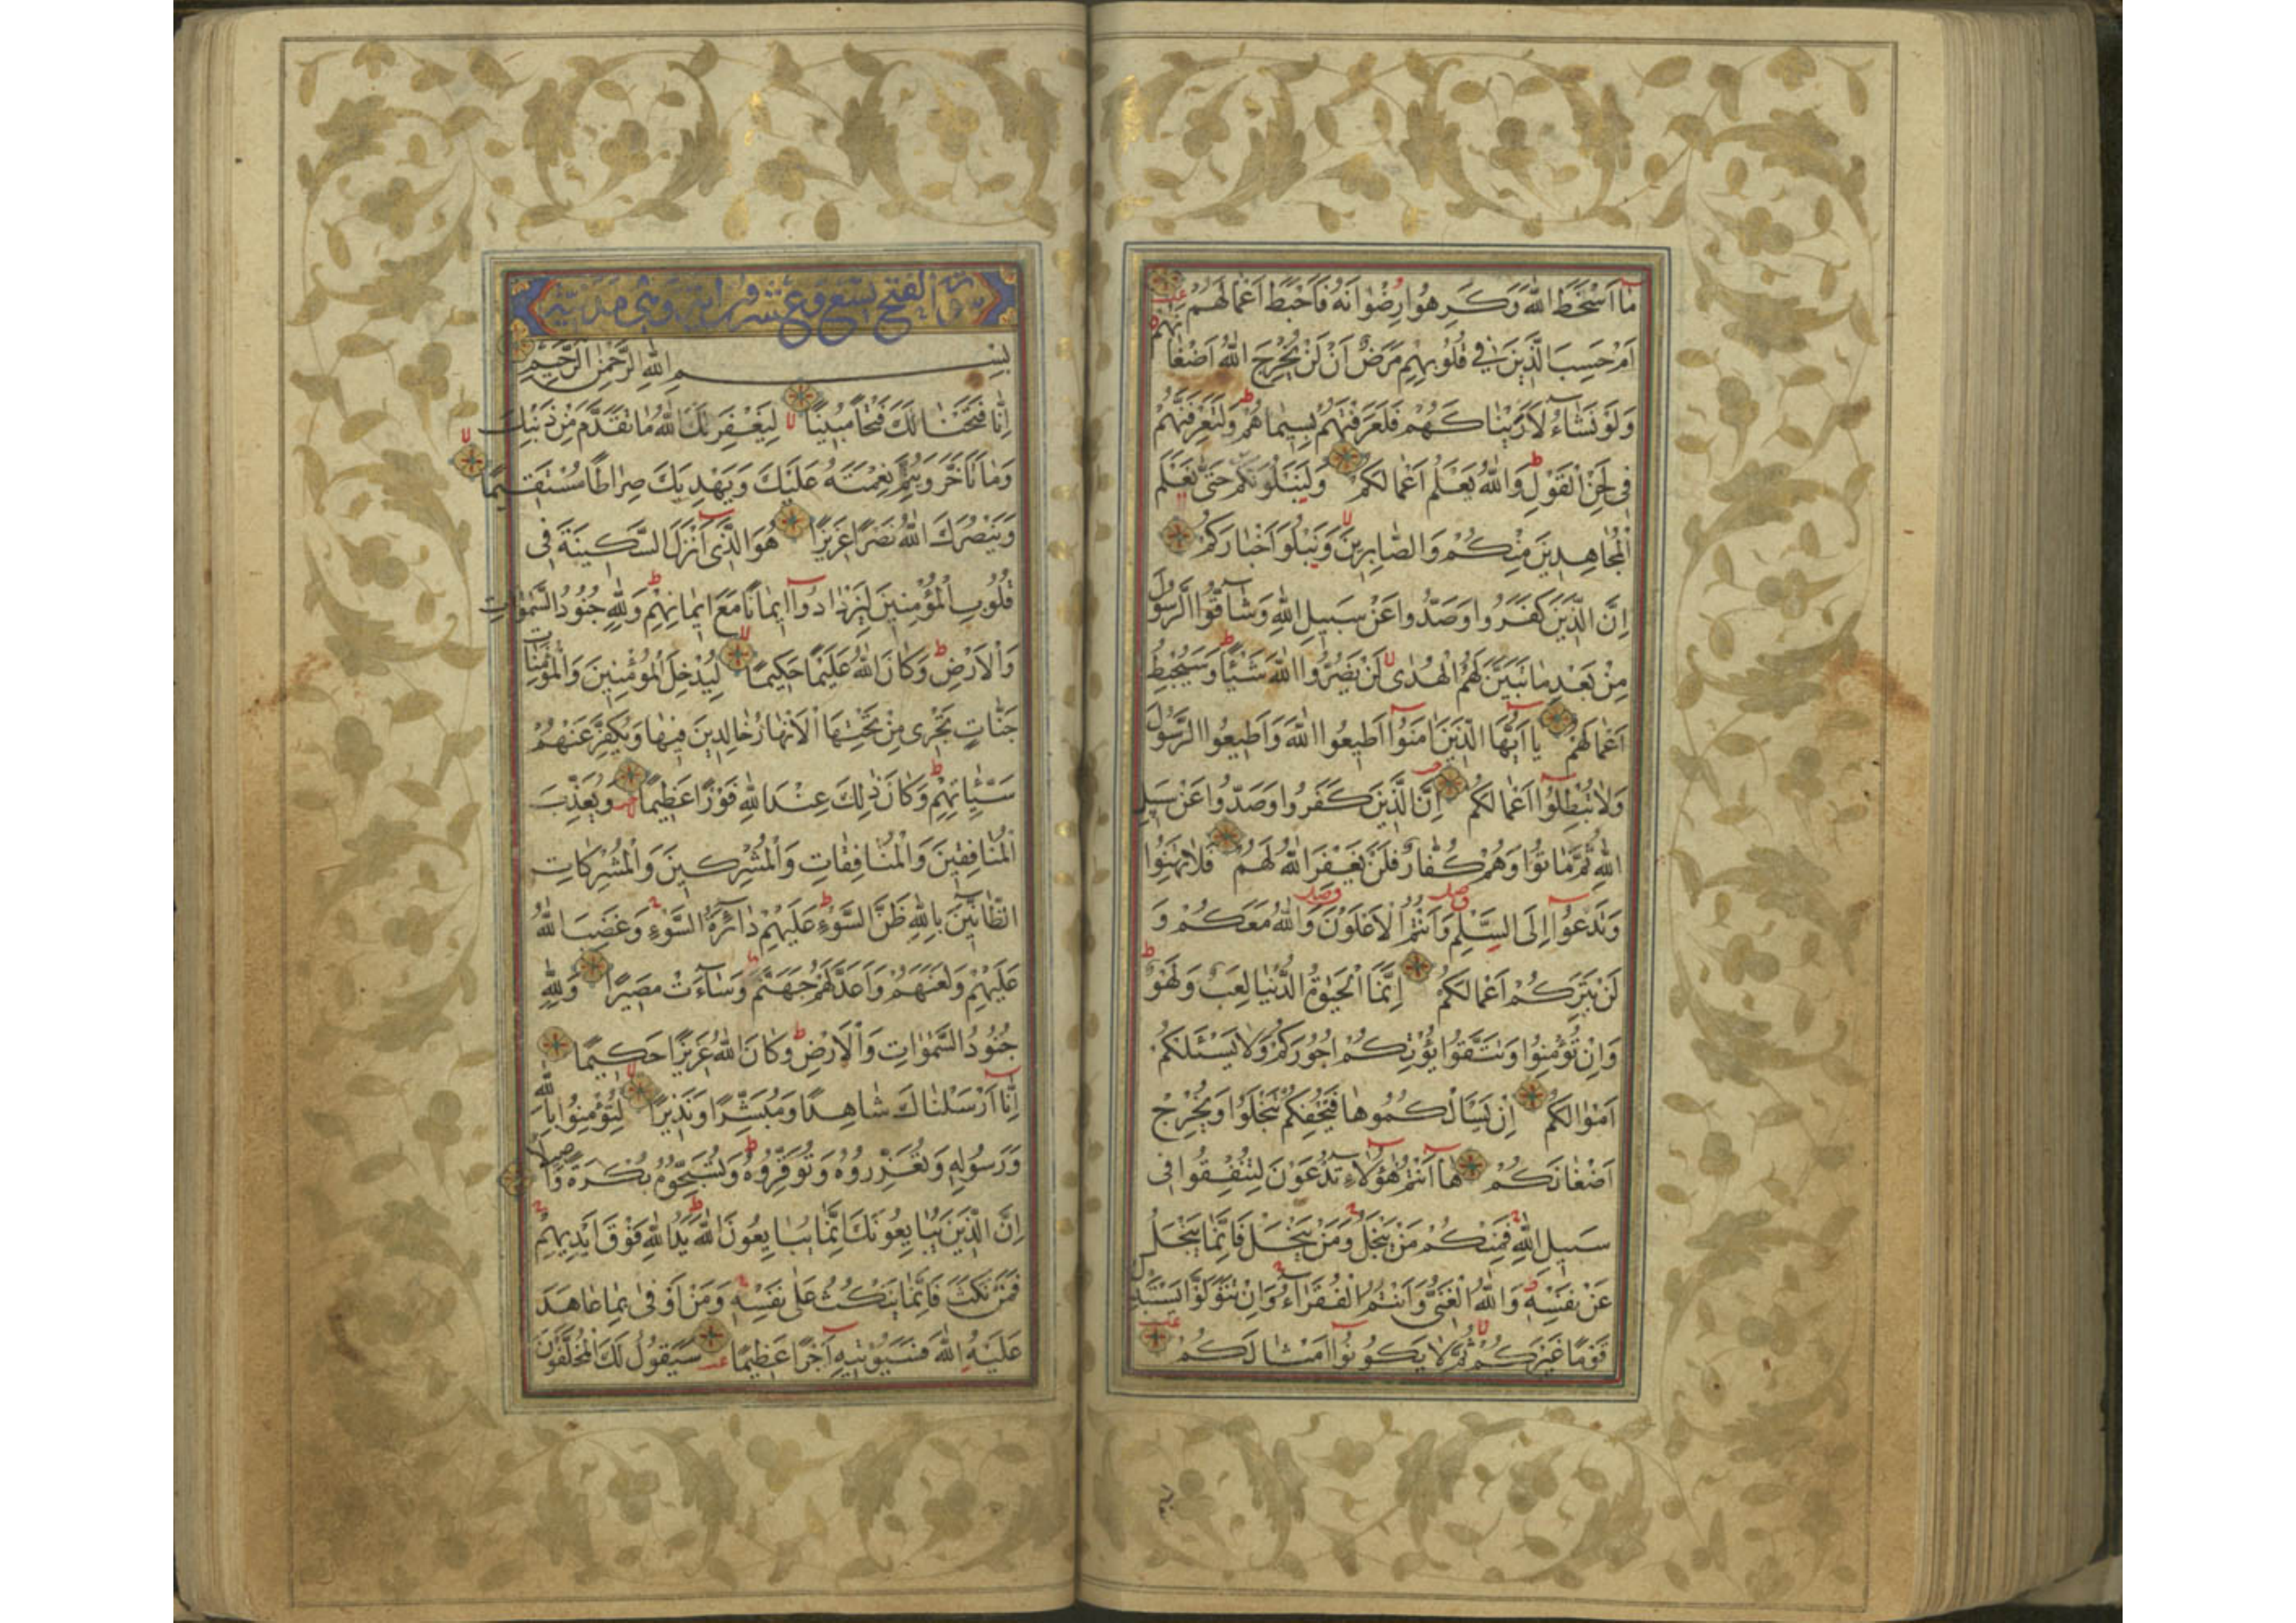 مٰا اَسْخَطَ اللهَ وَكَرِهُوا رِضْوٰانَهُ فَاَحْبَطَ اَعْمٰالَهُمْ
اَمْ حَسِبَ الَّذِينَ فِي قُلُوبِهِمْ مَرَضٌ اَنْ لَنْ يُخْرِجَ اللهُ اَضْغٰانَهُمْ
وَلَوْ نَشٰاءُ لَاَرَيْنٰاكَهُمْ فَلَعَرَفْتَهُمْ بِسِيمٰاهُمْ وَلَتَعْرِفَنَّهُمْ
فِي لَحْنِ الْقَوْلِ وَاللهُ يَعْلَمُ اَعْمٰالَكُمْ وَلَنَبْلُوَنَّكُمْ حَتّٰى نَعْلَمَ
الْمُجٰاهِدِينَ مِنْكُمْ وَالصّٰابِرِينَ وَنَبْلُوَا اَخْبٰارَكُمْ
اِنَّ الَّذِينَ كَفَرُوا وَصَدُّوا عَنْ سَبِيلِ اللهِ وَشٰاقُّوا الرَّسُولَ
مِنْ بَعْدِ مٰا تَبَيَّنَ لَهُمُ الْهُدٰى لَنْ يَضُرُّوا اللهَ شَيْئًا وَسَيُحْبِطُ
اَعْمٰالَهُمْ يٰا اَيُّهَا الَّذِينَ اٰمَنُوا اَطِيعُوا اللهَ وَاَطِيعُوا الرَّسُولَ
وَلٰا تُبْطِلُوا اَعْمٰالَكُمْ اِنَّ الَّذِينَ كَفَرُوا وَصَدُّوا عَنْ سَبِيلِ
اللهِ ثُمَّ مٰاتُوا وَهُمْ كُفّٰارٌ فَلَنْ يَغْفِرَ اللهُ لَهُمْ فَلٰا تَهِنُوا
وَتَدْعُوا اِلَى السَّلْمِ وَاَنْتُمُ الْاَعْلَوْنَ وَاللهُ مَعَكُمْ وَ
لَنْ يَتِرَكُمْ اَعْمٰالَكُمْ اِنَّمَا الْحَيٰوةُ الدُّنْيٰا لَعِبٌ وَلَهْوٌ
وَاِنْ تُؤْمِنُوا وَتَتَّقُوا يُؤْتِكُمْ اُجُورَكُمْ وَلٰا يَسْئَلْكُمْ
اَمْوٰالَكُمْ اِنْ يَسْأَلْكُمُوهٰا فَيُحْفِكُمْ تَبْخَلُوا وَيُخْرِجْ
اَضْغٰانَكُمْ هٰا اَنْتُمْ هٰؤُلٰاءِ تُدْعَوْنَ لِتُنْفِقُوا فِي
سَبِيلِ اللهِ فَمِنْكُمْ مَنْ يَبْخَلُ وَمَنْ يَبْخَلْ فَاِنَّمٰا يَبْخَلُ
عَنْ نَفْسِهِ وَاللهُ الْغَنِيُّ وَاَنْتُمُ الْفُقَرٰاءُ وَاِنْ تَتَوَلَّوْا يَسْتَبْدِلْ
قَوْمًا غَيْرَكُمْ ثُمَّ لٰا يَكُونُوا اَمْثٰالَكُمْ
سورة الفتح تسع وعشرون اية وهي مدنية
بِسْمِ اللهِ الرَّحْمٰنِ الرَّحِيمِ
اِنّٰا فَتَحْنٰا لَكَ فَتْحًا مُبِينًا لِيَغْفِرَ لَكَ اللهُ مٰا تَقَدَّمَ مِنْ ذَنْبِكَ
وَمٰا تَاَخَّرَ وَيُتِمَّ نِعْمَتَهُ عَلَيْكَ وَيَهْدِيَكَ صِرٰاطًا مُسْتَقِيمًا
وَيَنْصُرَكَ اللهُ نَصْرًا عَزِيزًا هُوَ الَّذِي اَنْزَلَ السَّكِينَةَ فِي
قُلُوبِ الْمُؤْمِنِينَ لِيَزْدٰادُوا اِيمٰانًا مَعَ اِيمٰانِهِمْ وَلِلّٰهِ جُنُودُ السَّمٰوٰاتِ
وَالْاَرْضِ وَكٰانَ اللهُ عَلِيمًا حَكِيمًا لِيُدْخِلَ الْمُؤْمِنِينَ وَالْمُؤْمِنٰاتِ
جَنّٰاتٍ تَجْرِي مِنْ تَحْتِهَا الْاَنْهٰارُ خٰالِدِينَ فِيهٰا وَيُكَفِّرَ عَنْهُمْ
سَيِّئٰاتِهِمْ وَكٰانَ ذٰلِكَ عِنْدَ اللهِ فَوْزًا عَظِيمًا وَيُعَذِّبَ
الْمُنٰافِقِينَ وَالْمُنٰافِقٰاتِ وَالْمُشْرِكِينَ وَالْمُشْرِكٰاتِ
الظّٰانِّينَ بِاللهِ ظَنَّ السَّوْءِ عَلَيْهِمْ دٰائِرَةُ السَّوْءِ وَغَضِبَ اللهُ
عَلَيْهِمْ وَلَعَنَهُمْ وَاَعَدَّ لَهُمْ جَهَنَّمَ وَسٰاءَتْ مَصِيرًا وَلِلّٰهِ
جُنُودُ السَّمٰوٰاتِ وَالْاَرْضِ وَكٰانَ اللهُ عَزِيزًا حَكِيمًا
اِنّٰا اَرْسَلْنٰاكَ شٰاهِدًا وَمُبَشِّرًا وَنَذِيرًا لِتُؤْمِنُوا بِاللهِ
وَرَسُولِهِ وَتُعَزِّرُوهُ وَتُوَقِّرُوهُ وَتُسَبِّحُوهُ بُكْرَةً وَاَصِيلًا
اِنَّ الَّذِينَ يُبٰايِعُونَكَ اِنَّمٰا يُبٰايِعُونَ اللهَ يَدُ اللهِ فَوْقَ اَيْدِيهِمْ
فَمَنْ نَكَثَ فَاِنَّمٰا يَنْكُثُ عَلٰى نَفْسِهِ وَمَنْ اَوْفٰى بِمٰا عٰاهَدَ
عَلَيْهُ اللهَ فَسَيُؤْتِيهِ اَجْرًا عَظِيمًا سَيَقُولُ لَكَ الْمُخَلَّفُونَ